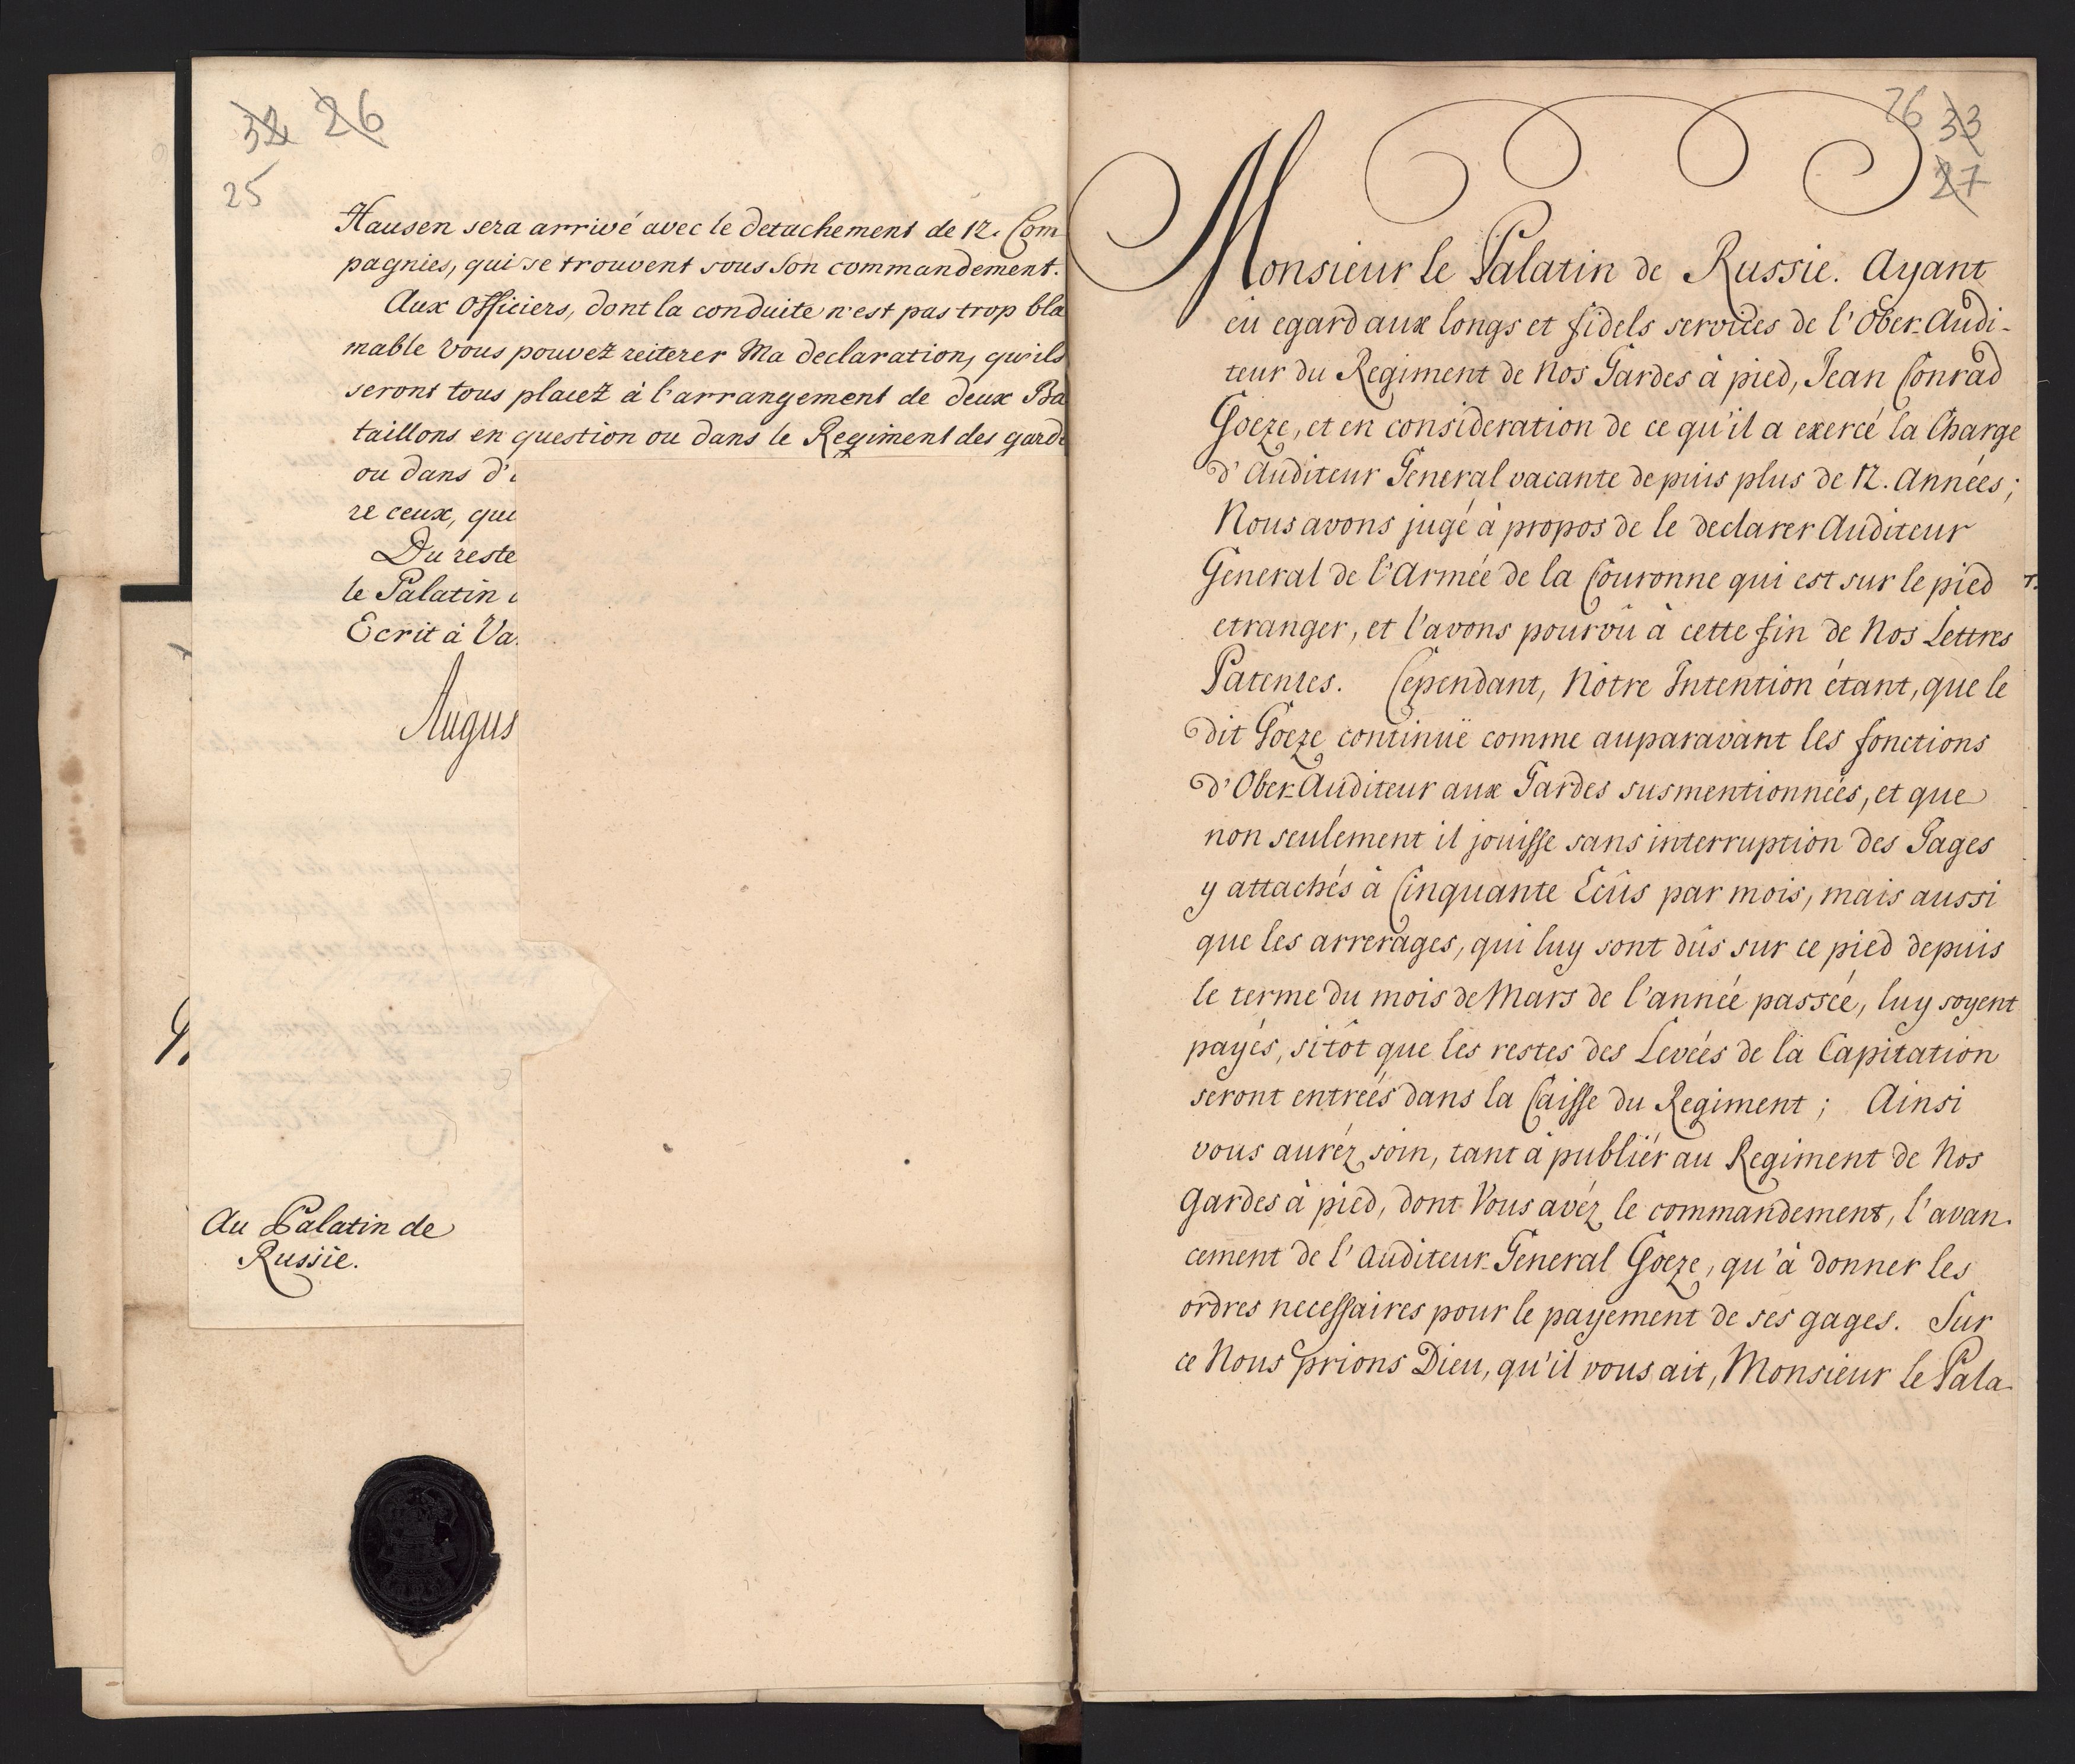 32 26
25
Hausen sera arrivé avec le detachement de 12. Com
pagnies, qui se trouvent sous Son commandement.
Aux Officiers, dont la conduite n'est pas trop bla
mable vous pouvez reiterer Ma declaration, qu'ils
seront tous placez à l'arrangement de deux Ba
taillons en question ou dans le Regiment des garde
ou dans d'
re ceux, qui
Du reste
le Palatin
Ecrit à Va
Augus
Au Palatin de
Russie.
26 33
27
Monsieur le Palatin de Russie. Ayant
eu egard aux longs et fidels services de l'Ober-Audi-
teur du Regiment de Nos Gardes à pied, Jean Conrad
Goeze, et en consideration de ce qu'il a exercé la Charge
d'Auditeur General vacante depuis plus de 12. Années;
Nous avons jugé à propos de le declarer Auditeur
General de l'Armée de la Couronne qui est sur le pied
etranger, et l'avons pourvû à cette fin de Nos Lettres
Patentes. Cependant, Nôtre Intention étant, que le
dit Goeze continuë comme auparavant les fonctions
d'Ober-Auditeur aux Gardes susmentionnées, et que
non seulement il jouisse sans interruption des Gages
y attachés à Cinquante Ecûs par mois, mais aussi
que les arrerages, qui luy sont dûs sur ce pied depuis
le terme du mois de Mars de l'année passée, luy soyent
payés, sitôt que les restes des Levées de la Capitation
seront entrées dans la Caisse du Regiment; Ainsi
vous auréz soin, tant à publiér au Regiment de Nos
Gardes à pied, dont Vous avéz le commandement, l'avan-
cement de l'Auditeur-General Goeze, qu'à donner les
ordres necessaires pour le payement de ses gages. Sur
ce Nous prions Dieu, qu'il vous ait, Monsieur le Pala-